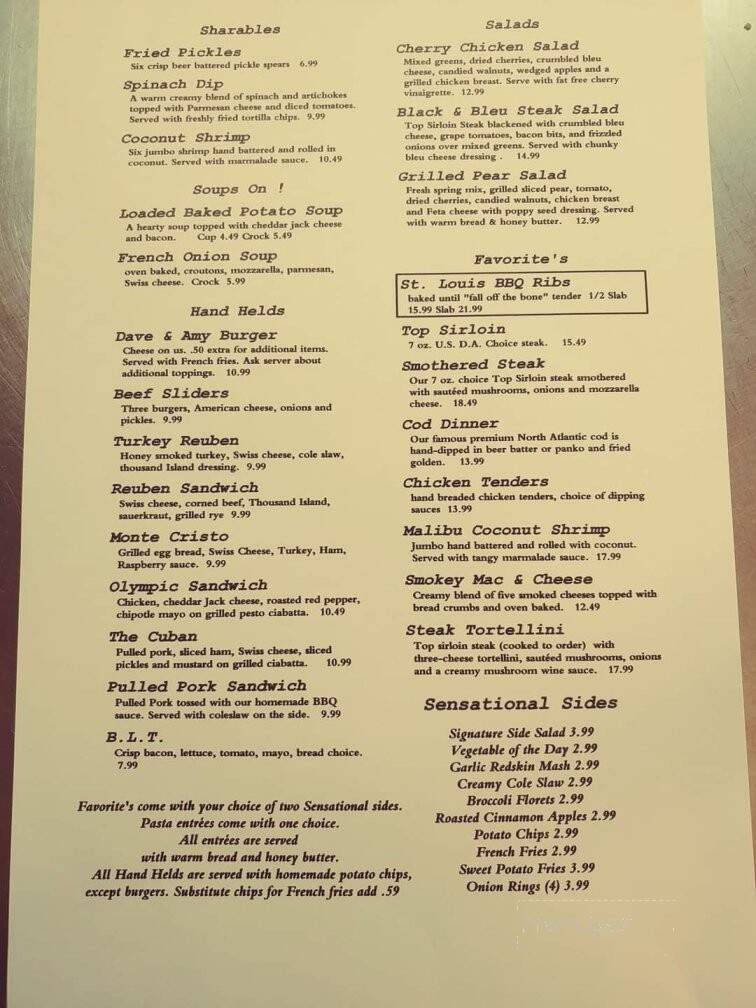 Sharables
Fried Pickles
Six crisp beer battered pickle spears 6.99
Spinach Dip
A warm creamy blend of spinach and artichokes
topped with Parmesan cheese and diced tomatoes.
Served with freshly fried tortilla chips. 9.99
Coconut Shrimp
Six jumbo shrimp hand battered and rolled in
coconut. Served with marmalade sauce. 10.49
Soups On !
Loaded Baked Potato Soup
A hearty soup topped with cheddar jack cheese
and bacon. Cup 4.49 Crock 5.49
French Onion Soup
oven baked, croutons, mozzarella, parmesan,
Swiss cheese. Crock 5.99
Hand Helds
Dave & Amy Burger
Cheese on us. .50 extra for additional items.
Served with French fries. Ask server about
additional toppings. 10.99
Beef Sliders
Three burgers, American cheese, onions and
pickles. 9.99
Turkey Reuben
Honey smoked turkey, Swiss cheese, cole slaw,
thousand Island dressing. 9.99
Reuben Sandwich
Swiss cheese, corned beef, Thousand Island,
sauerkraut, grilled rye 9.99
Monte Cristo
Grilled egg bread, Swiss Cheese, Turkey, Ham,
Raspberry sauce. 9.99
Olympic Sandwich
Chicken, cheddar Jack cheese, roasted red pepper,
chipotle mayo on grilled pesto ciabatta. 10.49
The Cuban
Pulled pork, sliced ham, Swiss cheese, sliced
pickles and mustard on grilled ciabatta. 10.99
Pulled Pork Sandwich
Pulled Pork tossed with our homemade BBQ
sauce. Served with coleslaw on the side. 9.99
B.L.T.
Crisp bacon, lettuce, tomato, mayo, bread choice.
7.99
Favorite's come with your choice of two Sensational sides.
Pasta entrées come with one choice.
All entrées are served
with warm bread and honey butter.
All Hand Helds are served with homemade potato chips,
except burgers. Substitute chips for French fries add .59
Salads
Cherry Chicken Salad
Mixed greens, dried cherries, crumbled bleu
cheese, candied walnuts, wedged apples and a
grilled chicken breast. Serve with fat free cherry
vinaigrette. 12.99
Black & Bleu Steak Salad
Top Sirloin Steak blackened with crumbled bleu
cheese, grape tomatoes, bacon bits, and frizzled
onions over mixed greens. Served with chunky
bleu cheese dressing . 14.99
Grilled Pear Salad
Fresh spring mix, grilled sliced pear, tomato,
dried cherries, candied walnuts, chicken breast
and Feta cheese with poppy seed dressing. Served
with warm bread & honey butter. 12.99
Favorite's
St. Louis BBQ Ribs
baked until "fall off the bone" tender 1/2 Slab
15.99 Slab 21.99
Top Sirloin
7 oz. U.S. D.A. Choice steak. 15.49
Smothered Steak
Our 7 oz. choice Top Sirloin steak smothered
with sautéed mushrooms, onions and mozzarella
cheese. 18.49
Cod Dinner
Our famous premium North Atlantic cod is
hand-dipped in beer batter or panko and fried
golden. 13.99
Chicken Tenders
hand breaded chicken tenders, choice of dipping
sauces 13.99
Malibu Coconut Shrimp
Jumbo hand battered and rolled with coconut.
Served with tangy marmalade sauce. 17.99
Smokey Mac & Cheese
Creamy blend of five smoked cheeses topped with
bread crumbs and oven baked. 12.49
Steak Tortellini
Top sirloin steak (cooked to order) with
three-cheese tortellini, sautéed mushrooms, onions
and a creamy mushroom wine sauce. 17.99
Sensational Sides
Signature Side Salad 3.99
Vegetable of the Day 2.99
Garlic Redskin Mash 2.99
Creamy Cole Slaw 2.99
Broccoli Florets 2.99
Roasted Cinnamon Apples 2.99
Potato Chips 2.99
French Fries 2.99
Sweet Potato Fries 3.99
Onion Rings (4) 3.99